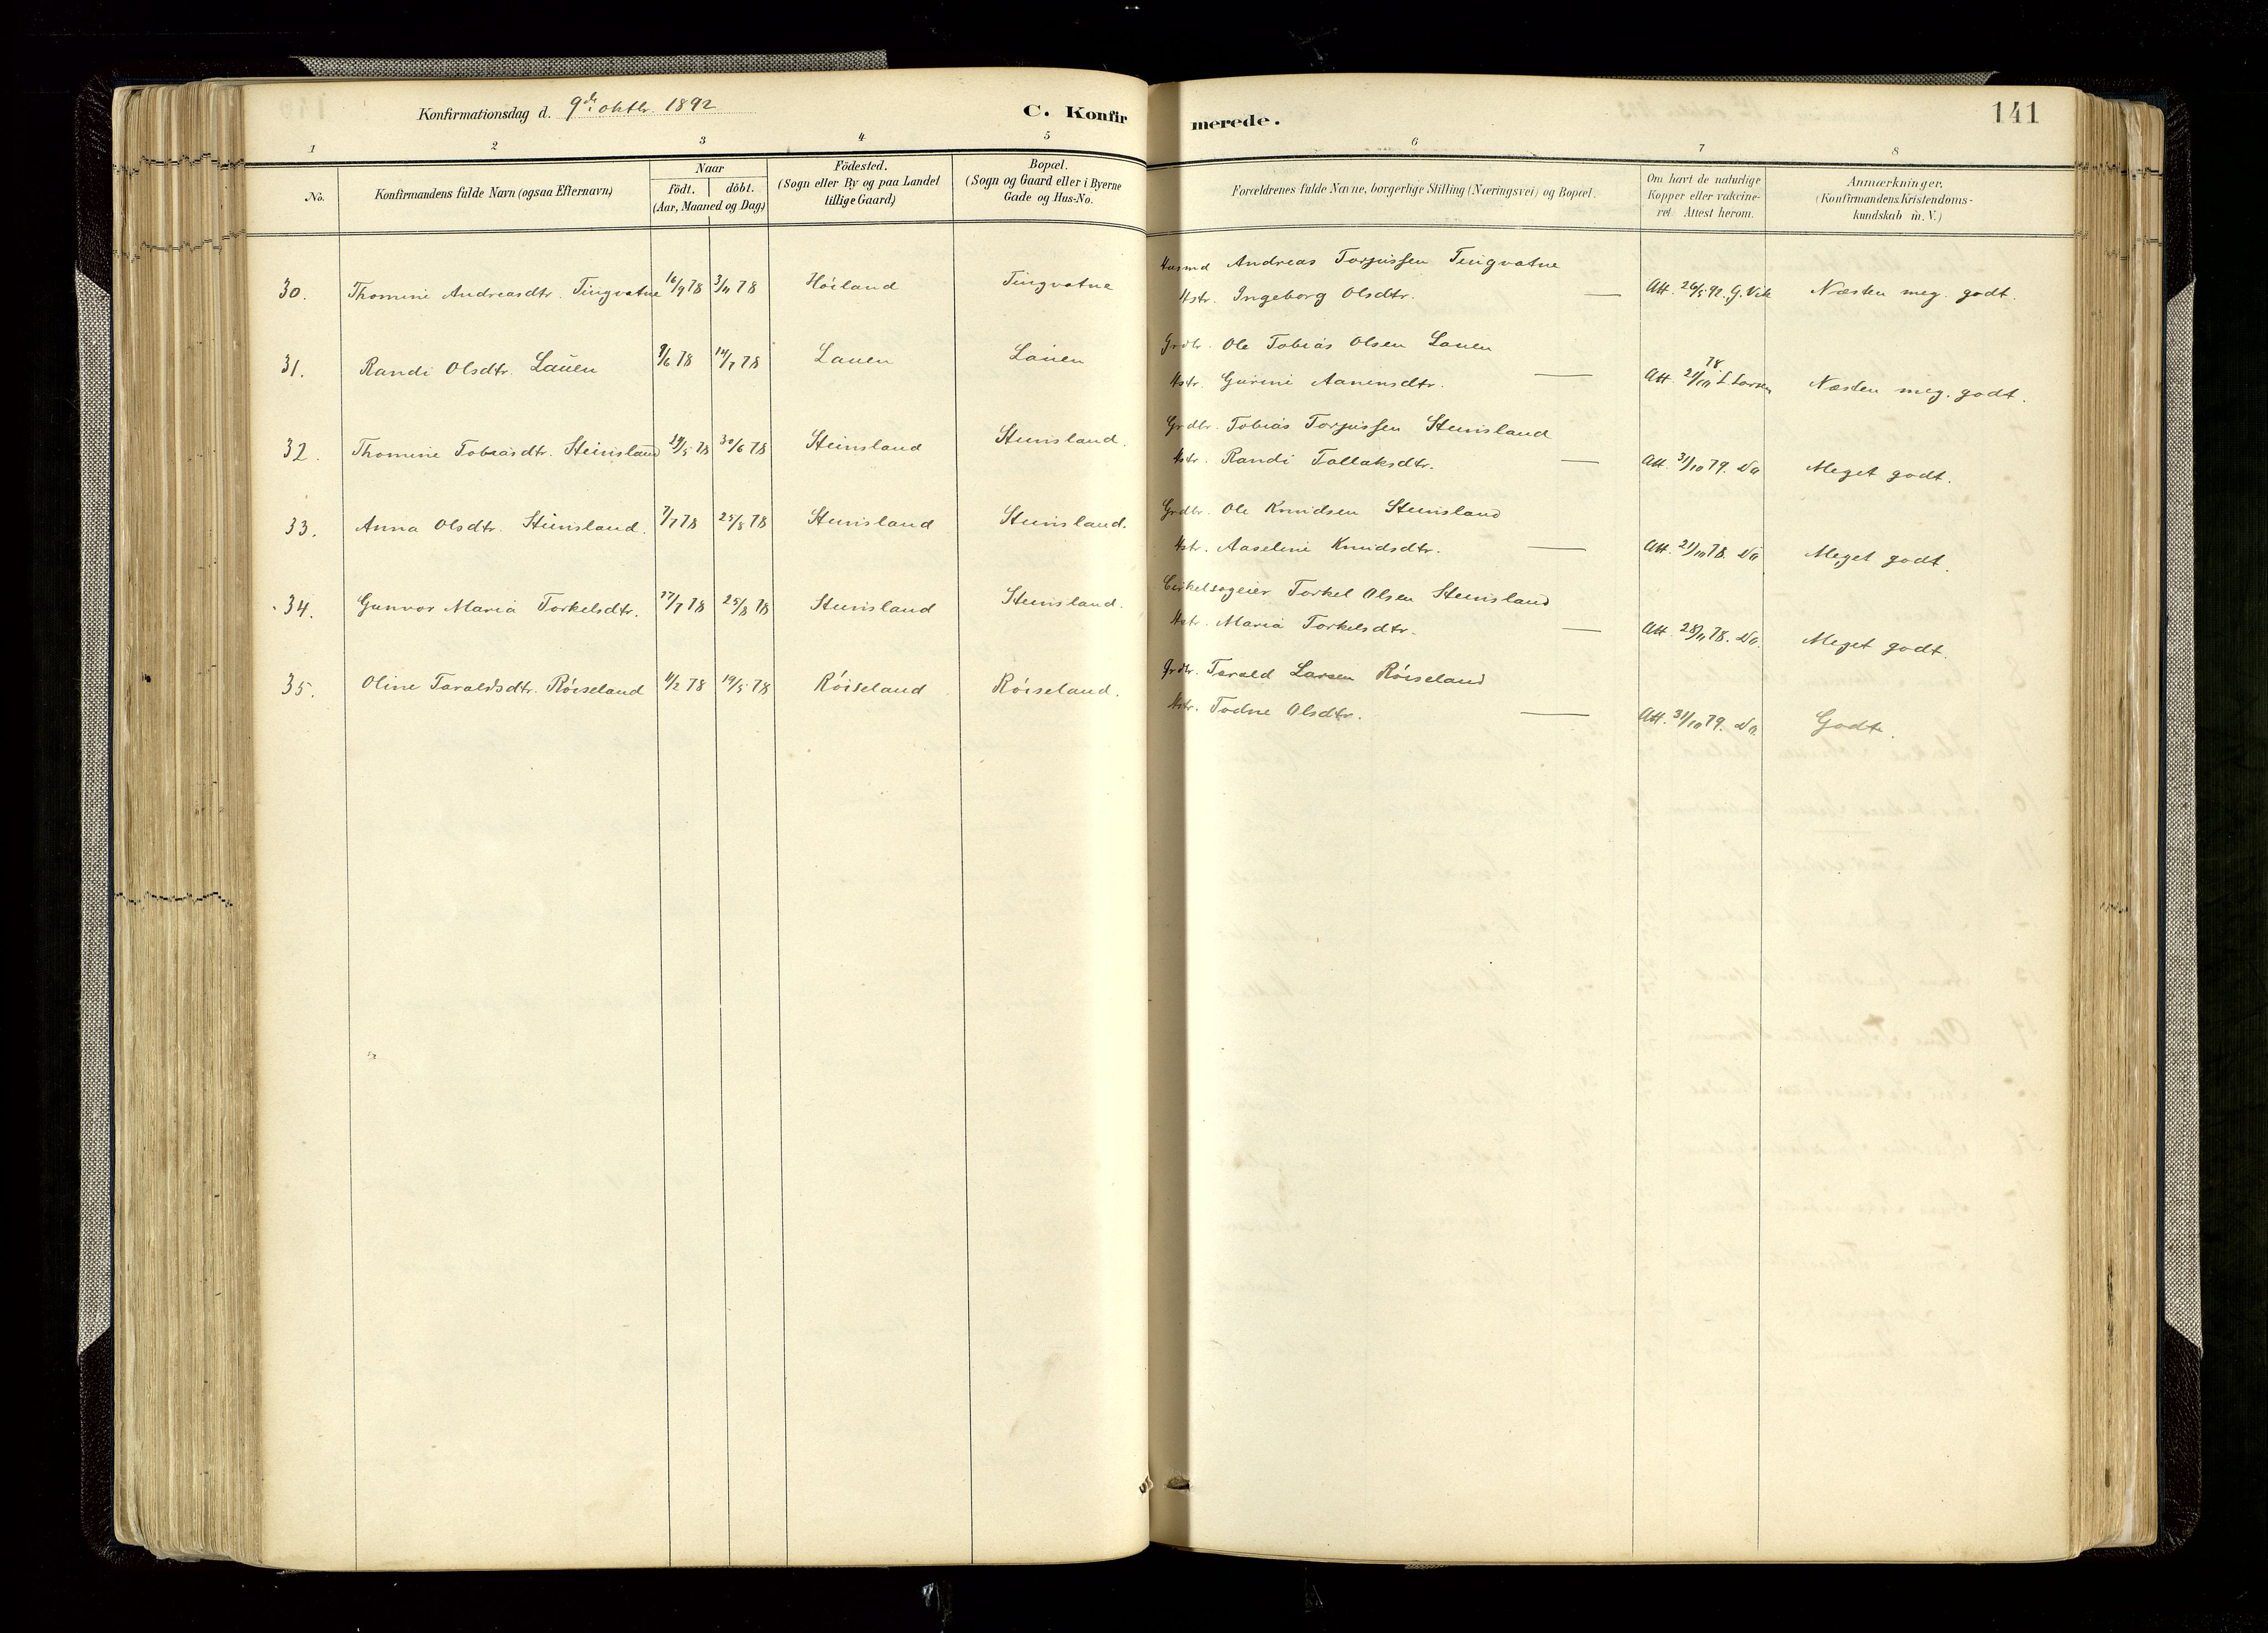 Konfirmationsdag d. 9de oktbr. 1892
C. Konfirmerede.
141
1 2 3 4 5 6 7 8
No.
Konfirmandens fulde Navn (ogsaa Efternavn)
Naar
födt. döbt.
(Aar, Maaned og Dag)
Födested.
(Sogn eller By og paa Landet
tillige Gaard)
Bopæl.
(Sogn og Gaard eller i Byerne
Gade og Hus-No.
Forældrenes fulde Navne, borgerlige Stilling (Næringsvei) og Bopæl.
Om havt de naturlige
Kopper eller vakcine-
ret. Attest herom.
Anmærkninger.
(Konfirmandens Kristendoms-
kundskab m. V.)
30. Thomine Andreasdtr. Tingvatne 16/9 78 3/11 78 Höiland Tingvatne
Husmd Andreas Torjussen Tingvatne
Hstr. Ingeborg Olsdtr. — Att. 26/5 92. G. Vik Næsten meg. godt.
31. Randi Olsdtr. Lauen 9/6 78 14/7 78 Lauen Lauen
Grdbr. Ole Tobias Olsen Lauen
Hstr. Gurine Aanensdtr. — Att. 21/10 78 L. Larsen Næsten meg. godt.
32. Thomine Tobiasdtr. Steinsland 29/5 78 30/6 78 Steinsland Steinsland.
Grdbr. Tobias Torjussen Steinsland
Hstr. Randi Tallaksdtr. — Att. 31/10 79. Do Meget godt.
33. Anna Olsdtr. Steinsland. 7/7 78 25/8 78 Steinsland Steinsland.
Grdbr. Ole Knudsen Steinsland
Hstr. Aaseline Knudsdtr. — Att. 21/10 78. Do Meget godt.
34. Gunvor Maria Torkelsdtr. 17/7 78 25/8 78 Steinsland Steinsland.
Cirkelsageier Torkel Olsen Steinsland
Hstr. Maria Torkelsdtr. — Att. 28/11 78. Do. Meget godt.
35. Oline Taraldsdtr. Röiseland 11/2 78 19/5 78 Röiseland Röiseland.
Grdbr. Tarald Larsen Röiseland
Hstr. Todne Olsdtr. — Att. 31/10 79. Do. Godt.